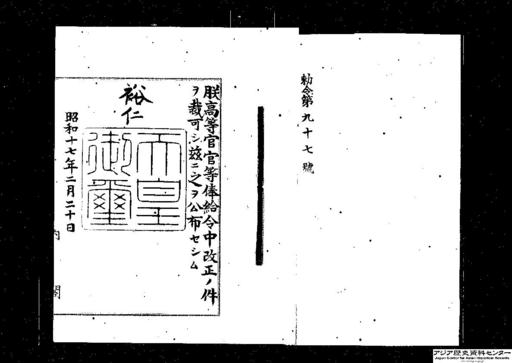 勅令第九十七號
朕高等官官等俸給令中改正ノ件
ヲ裁可シ茲ニ之ヲ公布セシム
裕仁
天皇
御璽
昭和十七年二月二十日
内閣
アジア歴史資料センター
Japan Center for Asian Historical Records